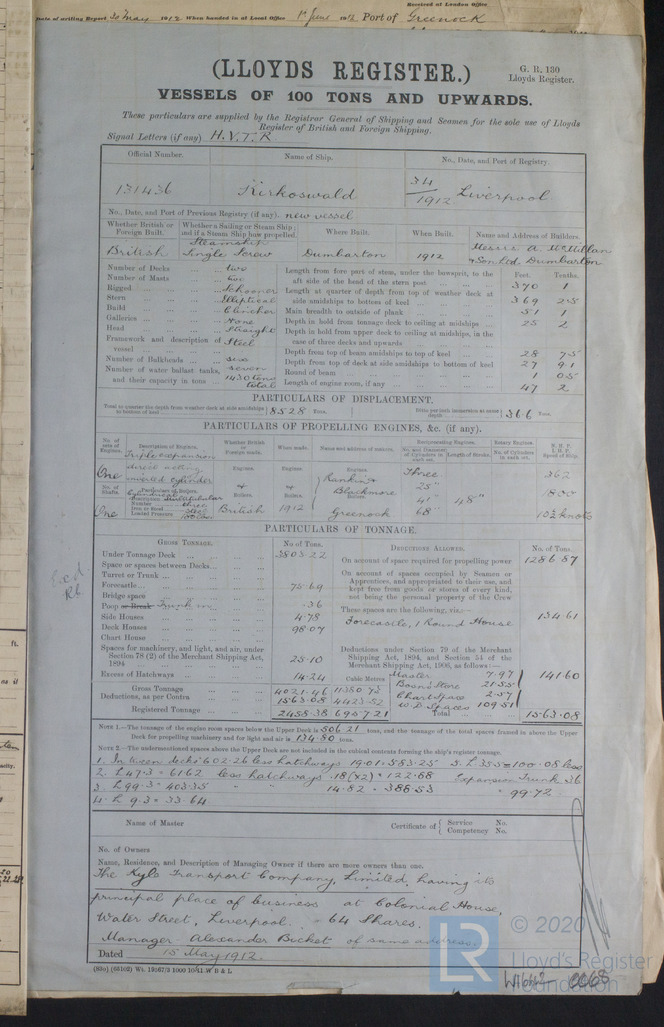 Received at London Office
Date of writing Report 30 May 1912 When handed in at Local Office 1st June 1912 Port of Greenock
(LLOYDS REGISTER.)
G. R. 130
Lloyds Register.
VESSELS OF 100 TONS AND UPWARDS.
These particulars are supplied by the Registrar General of Shipping and Seamen for the sole use of Lloyds
Register of British and Foreign Shipping.
Signal Letters (if any) H.V.T.R
Official Number. Name of Ship. No., Date, and Port of Registry.
131436 Kirkoswald 34/1912 Liverpool
No., Date, and Port of Previous Registry (if any). new vessel
Whether British or Foreign Built. Whether a Sailing or Steam Ship; and if a Steam Ship how propelled. Where Built. When Built. Name and Address of Builders.
British Steamship Single Screw Dumbarton 1912 Messrs A. McMillan & Son Ltd. Dumbarton
Number of Decks ... two
Number of Masts ... two
Rigged ... Schooner
Stern ... Elliptical
Build ... Clincher
Galleries ... None
Head ... Straight
Framework and description of vessel ... Steel
Number of Bulkheads ... six
Number of water ballast tanks, and their capacity in tons ... seven 1430 tons total
Feet. Tenths.
Length from fore part of stem, under the bowsprit, to the aft side of the head of the stern post 370 1
Length at quarter of depth from top of weather deck at side amidships to bottom of keel 369 25
Main breadth to outside of plank 51 1
Depth in hold from tonnage deck to ceiling at midships 25 2
Depth in hold from upper deck to ceiling at midships, in the case of three decks and upwards
Depth from top of beam amidships to top of keel 28 75
Depth from top of deck at side amidships to bottom of keel 27 91
Round of beam 1 05
Length of engine room, if any 47 2
PARTICULARS OF DISPLACEMENT.
Total to quarter the depth from weather deck at side amidships to bottom of keel 8528 Tons. Ditto per inch immersion at same depth 366 Tons.
PARTICULARS OF PROPELLING ENGINES, &c. (if any).
No. of sets of Engines. Description of Engines. Whether British or Foreign made. When made. Name and address of makers. Reciprocating Engines. Rotary Engines. N. H. P. I. H. P. Speed of Ship.
No. and Diameter of Cylinders in each set. Length of Stroke. No. of Cylinders in each set.
One Triple expansion direct acting inverted cylinder Engines. Engines. Engines. Rankin & Three 362
No. of Shafts. Particulars of Boilers. Boilers. Boilers. Blackmore Boilers. 25" 41" 48" 1800
Description Cylindrical Multitubular
Number three
Iron or Steel Steel
Loaded Pressure
One British 1912 Greenock 68" 10½ knots
PARTICULARS OF TONNAGE.
GROSS TONNAGE. No. of Tons.
Under Tonnage Deck ... 3803.22
Space or spaces between Decks ...
Turret or Trunk ...
Forecastle ... 75.69
Bridge space
Poop or Break Trunk .36
Side Houses 4.78
Deck Houses 98.07
Chart House
Spaces for machinery, and light, and air, under Section 78 (2) of the Merchant Shipping Act, 1894 25.10
Excess of Hatchways 14.24
Gross Tonnage 4021.46
Deductions, as per Contra 1563.08
Registered Tonnage 2458.38 6957.21
Cubic Metres
DEDUCTIONS ALLOWED. No. of Tons.
On account of space required for propelling power 1286.87
On account of spaces occupied by Seamen or Apprentices, and appropriated to their use, and kept free from goods or stores of every kind, not being the personal property of the Crew
These spaces are the following, viz.:— 134.61
Forecastle, 1 Round House
Deductions under Section 79 of the Merchant Shipping Act, 1894, and Section 54 of the Merchant Shipping Act, 1906, as follows:—
Master 7.97
Boatswain's Store 21.55
Chart Space 2.57
W.B Spaces 109.51
141.60
Total 1563.08
NOTE 1.—The tonnage of the engine room spaces below the Upper Deck is 506.21 tons, and the tonnage of the total spaces framed in above the Upper Deck for propelling machinery and for light and air is 134.80 tons.
NOTE 2.—The undermentioned spaces above the Upper Deck are not included in the cubical contents forming the ship's register tonnage.
1. In tween decks 602.26 less hatchways 19.01 = 583.25 3. L 35.5 = 100.08 less
2. L 47.3 = 61.62 less hatchways .18 (x2) = 122.88 Expansion Trunk .36
3. L 99.3 = 403.35 " " 14.82 = 388.53 = 99.72
4. L 9.3 = 33.64
Name of Master Certificate of Service No. Competency No.
No. of Owners
Name, Residence, and Description of Managing Owner if there are more owners than one.
The Kyle Transport Company, Limited, having its
principal place of business at Colonial House,
Water Street, Liverpool. - 64 Shares.
Manager Alexander Bicket of same address.
Dated 15 May 1912.
© 2020
LR
Lloyd's Register
Foundation
0068